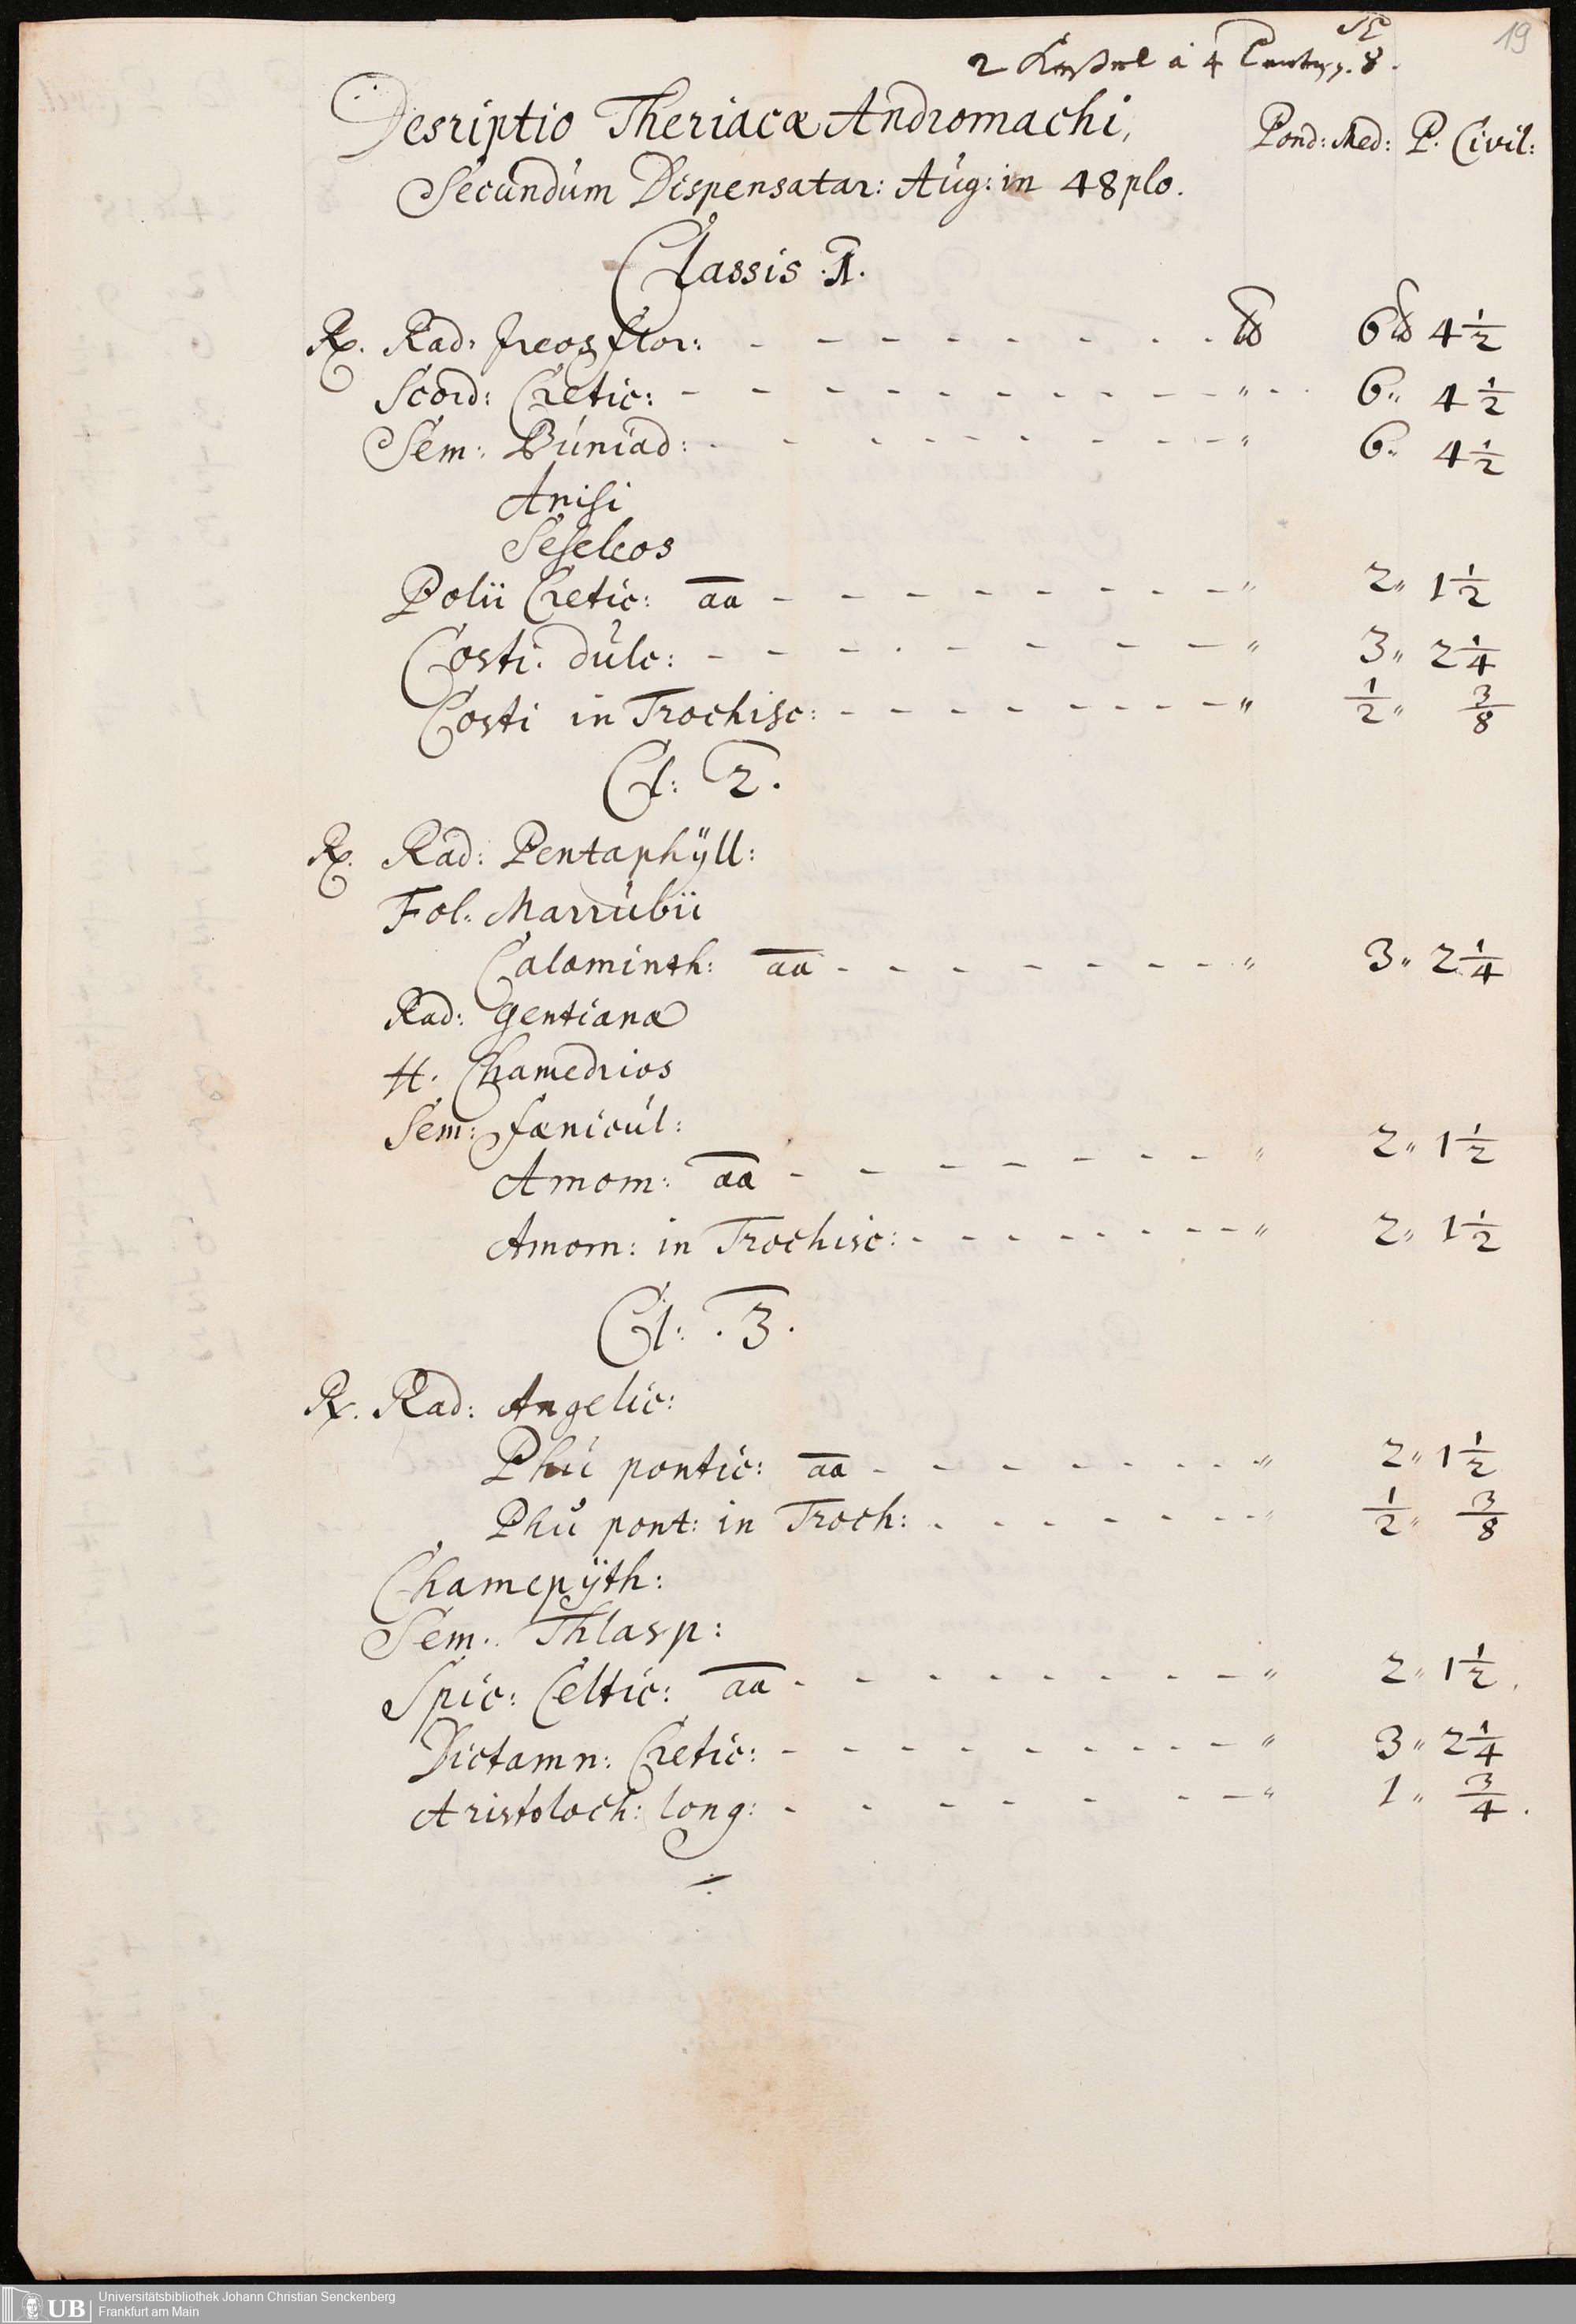 19
2 à 4 8.
Desriptio Theriacæ Andromachi,
Pond: Med: P. Civil:
Secundum Dispensatar: Aug: in 48plo.
Classis .1.
Rx. Rad: Jreos flor: - - - - - - - - - ℔ 6 ℔ 4 1/2
Scord: Cretic: - - - - - - - - - - " 6" 4 1/2
Sem: Buniad: - - - - - - - - - " 6" 4 1/2
Anisi
Seseleos
Polii Cretic: aa - - - - - - - - - " 2" 1 1/2
Costi. dulc: - - - - - - - - - " 3" 2 1/4
Costi in Trochisc: - - - - - - - - " 1/2" 3/8
Cl: 2.
Rx. Rad: Pentaphÿll:
Fol: Marrubii
Calaminth: aa - - - - - - - - " 3" 2 1/4
Rad: Gentianæ
H. Chamedrios
Sem: fænicul:
Amom: aa - - - - - - - " 2" 1 1/2
Amom: in Trochisc: - - - - - - - - " 2" 1 1/2
Cl: .3.
Rx. Rad: Angelic:
Phu pontic: aa - - - - - - - - " 2" 1 1/2
Phu pont: in Troch: - - - - - - - " 1/2" 3/8
Chamepÿth:
Sem: Thlasp:
Spic: Celtic: aa - - - - - - - - " 2" 1 1/2.
Dictamn: Cretic: - - - - - - - - - " 3" 2 1/4
Aristoloch: long: - - - - - - - " 1" 3/4.
UB Universitätsbibliothek Johann Christian Senckenberg
Frankfurt am Main